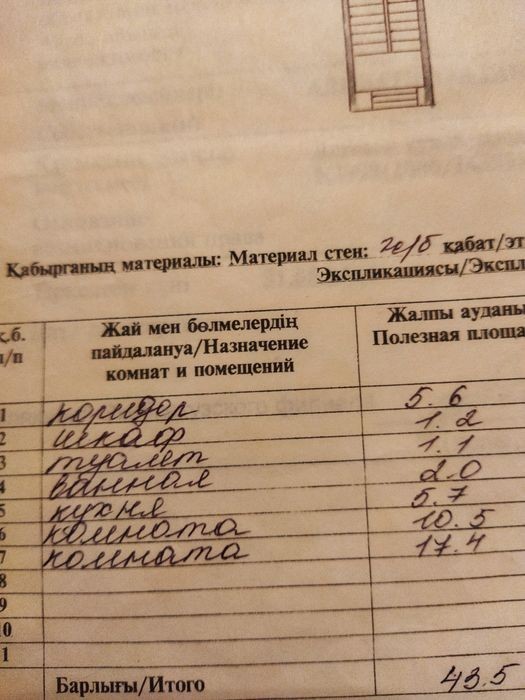 Қабырганың материалы: Материал стен: ж/б қабат/эт
Экспликациясы/Экспл
қ.б. п/п Жай мен бөлмелердің пайдалануа/Назначение комнат и помещений Жалпы ауданы Полезная площа
1 коридор 5.6
2 шкаф 1.2
3 туалет 1.1
4 ванная 2.0
5 кухня 5.7
6 комната 10.5
7 комната 17.4
8
9
10
1
Барлығы/Итого 43.5